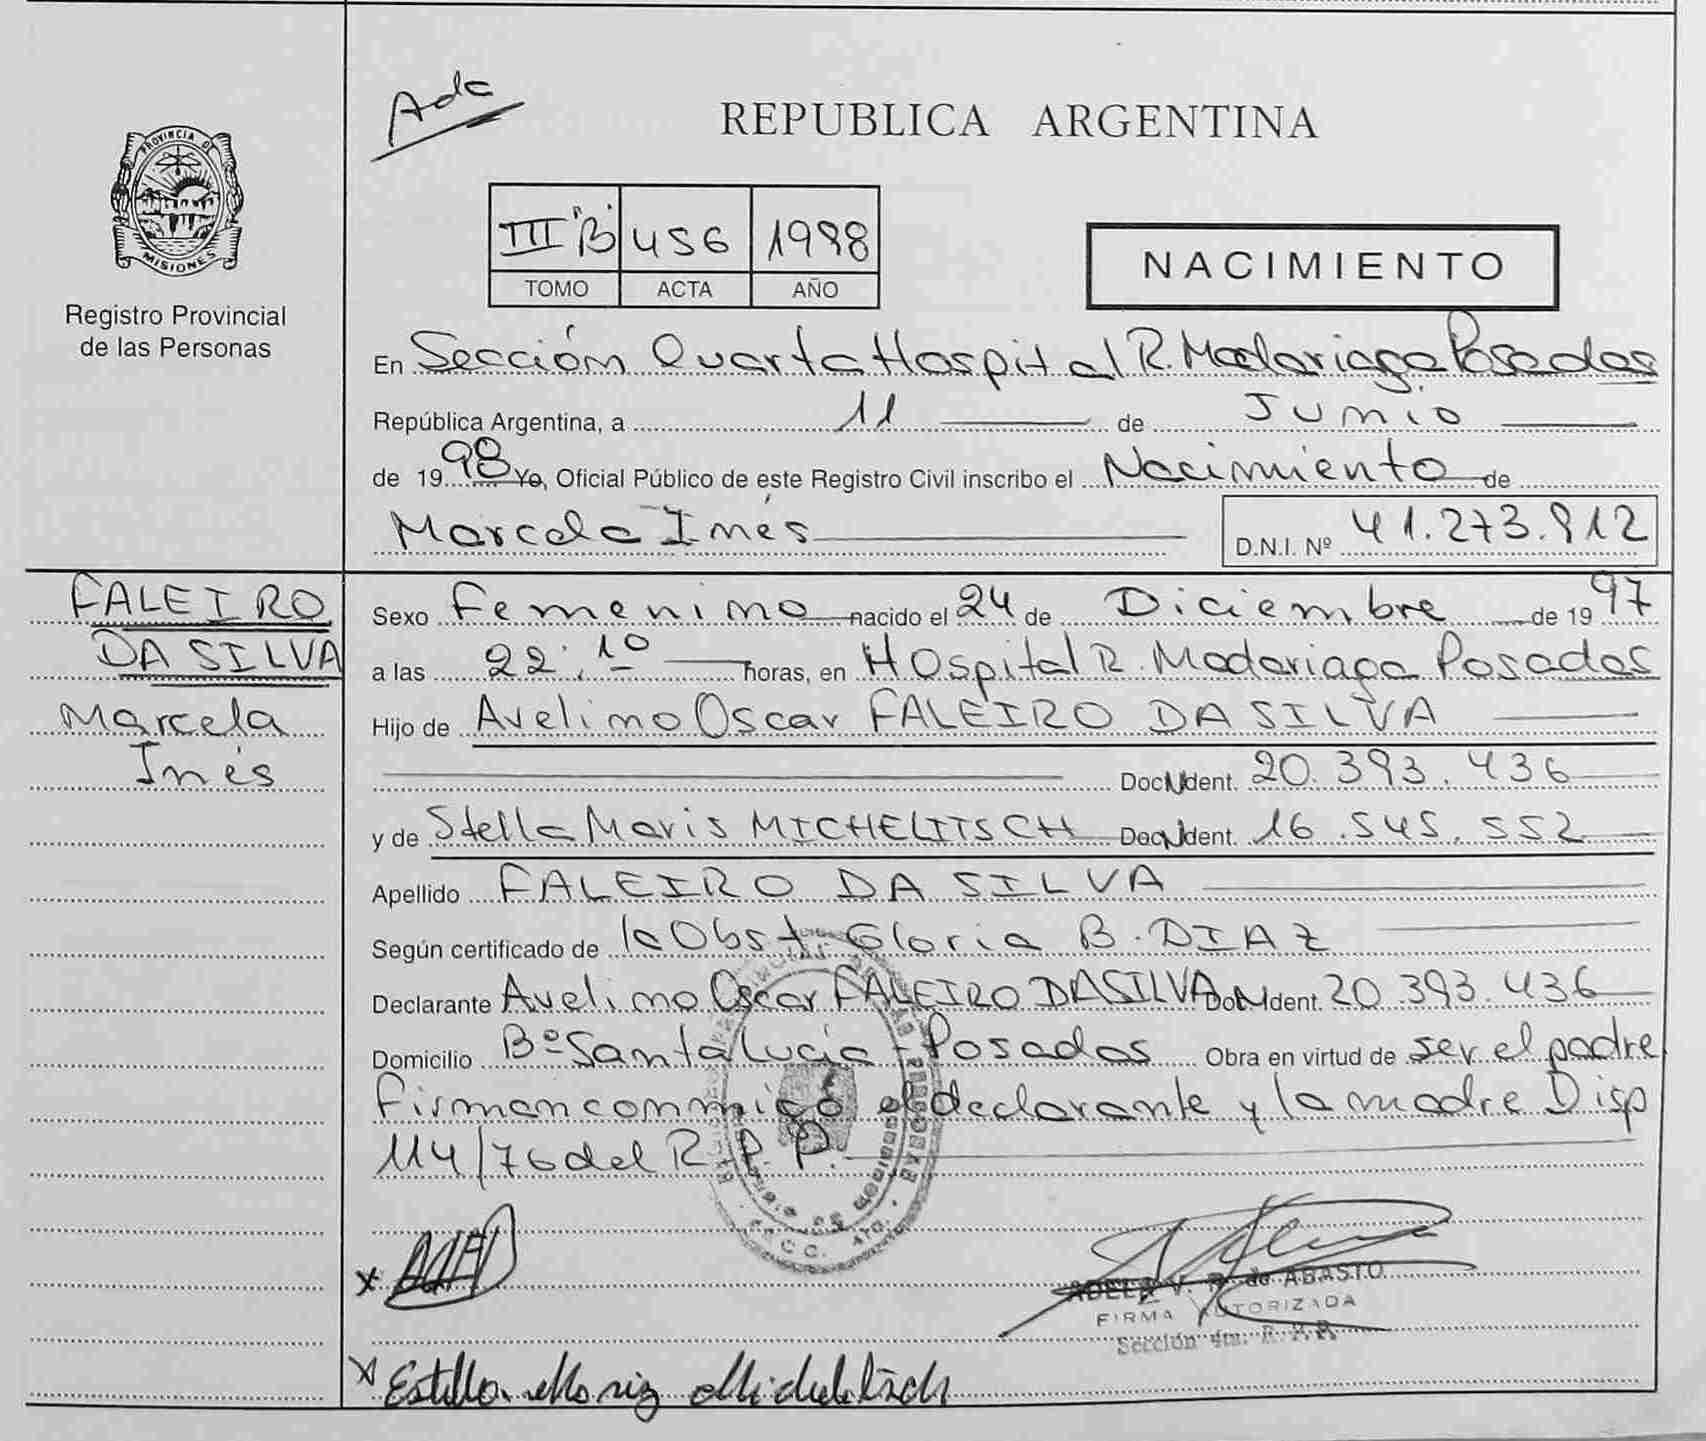 Ada
REPUBLICA ARGENTINA
PROVINCIA DE
MISIONES
Registro Provincial
de las Personas
III "B" 456 1998
TOMO ACTA AÑO
NACIMIENTO
En Sección Cuarta Hospital R. Madariaga Posadas
República Argentina, a 11 de Junio
de 1998 Yo, Oficial Público de este Registro Civil inscribo el Nacimiento de
Marcela Inés D.N.I. Nº 41.273.912
FALEIRO
DA SILVA
Marcela
Inés
Sexo Femenino nacido el 24 de Diciembre de 1997
a las 22:10 horas, en Hospital R. Madariaga Posadas
Hijo de Avelino Oscar FALEIRO DA SILVA
Doc. N Ident. 20.393.436
y de Stella Maris MICHELITSCH Doc. N Ident. 16.545.552
Apellido FALEIRO DA SILVA
Según certificado de la Obst. Gloria B. DIAZ
Declarante Avelino Oscar FALEIRO DA SILVA Doc. N Ident. 20.393.436
Domicilio Bº Santa Lucía - Posadas Obra en virtud de ser el padre
Firman conmigo el declarante y la madre Disp
114/76 del R. P. P.
x
ADELA V. de ABASTO
FIRMA AUTORIZADA
Sección 4ta. R. P. P.
x